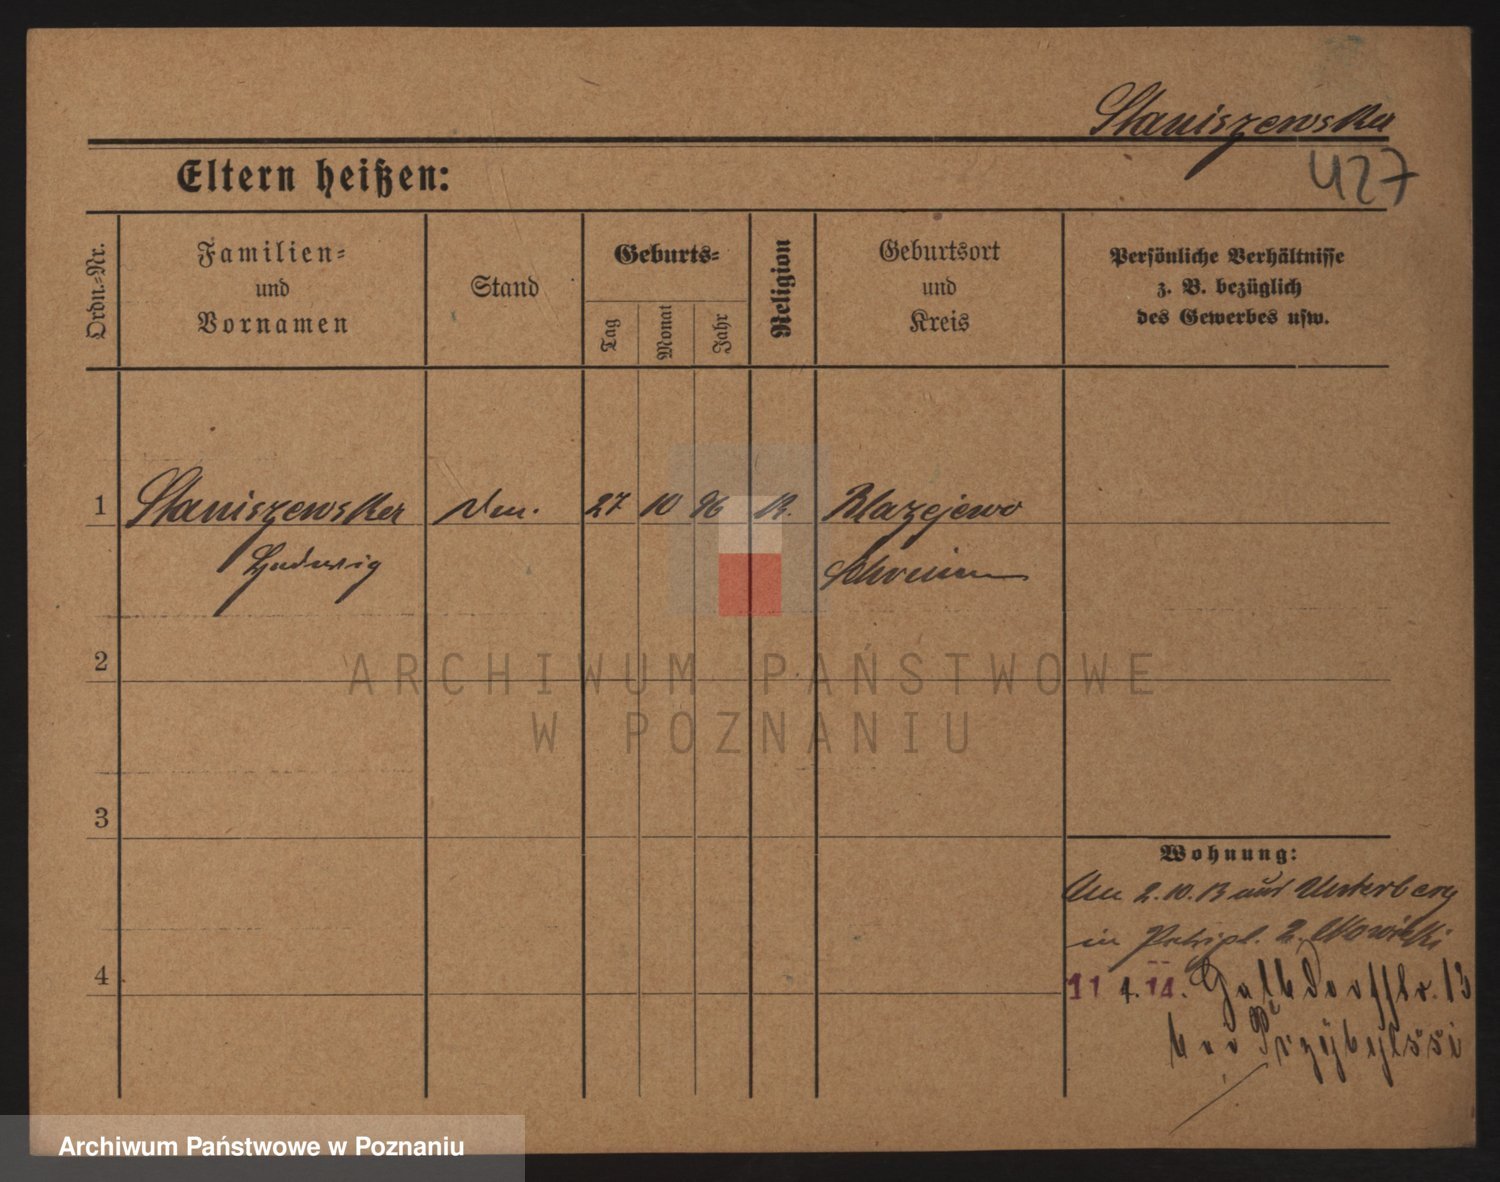 Staniszewska
427
Eltern heißen:
Ordn.-Nr.
Familien-
und
Vornamen
Stand
Geburts-
Tag
Monat
Jahr
Religion
Geburtsort
und
Kreis
Persönliche Verhältnisse
z. B. bezüglich
des Gewerbes usw.
1 Staniszewska 27 10 96 K. Blazejewo
Hedwig Schrimm
2
3
4
ARCHIWUM PAŃSTWOWE
W POZNANIU
Wohnung:
2.10.13 aus Unterberg
in Petripl. 2. Nowicki
11 4. 14. 13
Przybylski
Archiwum Państwowe w Poznaniu